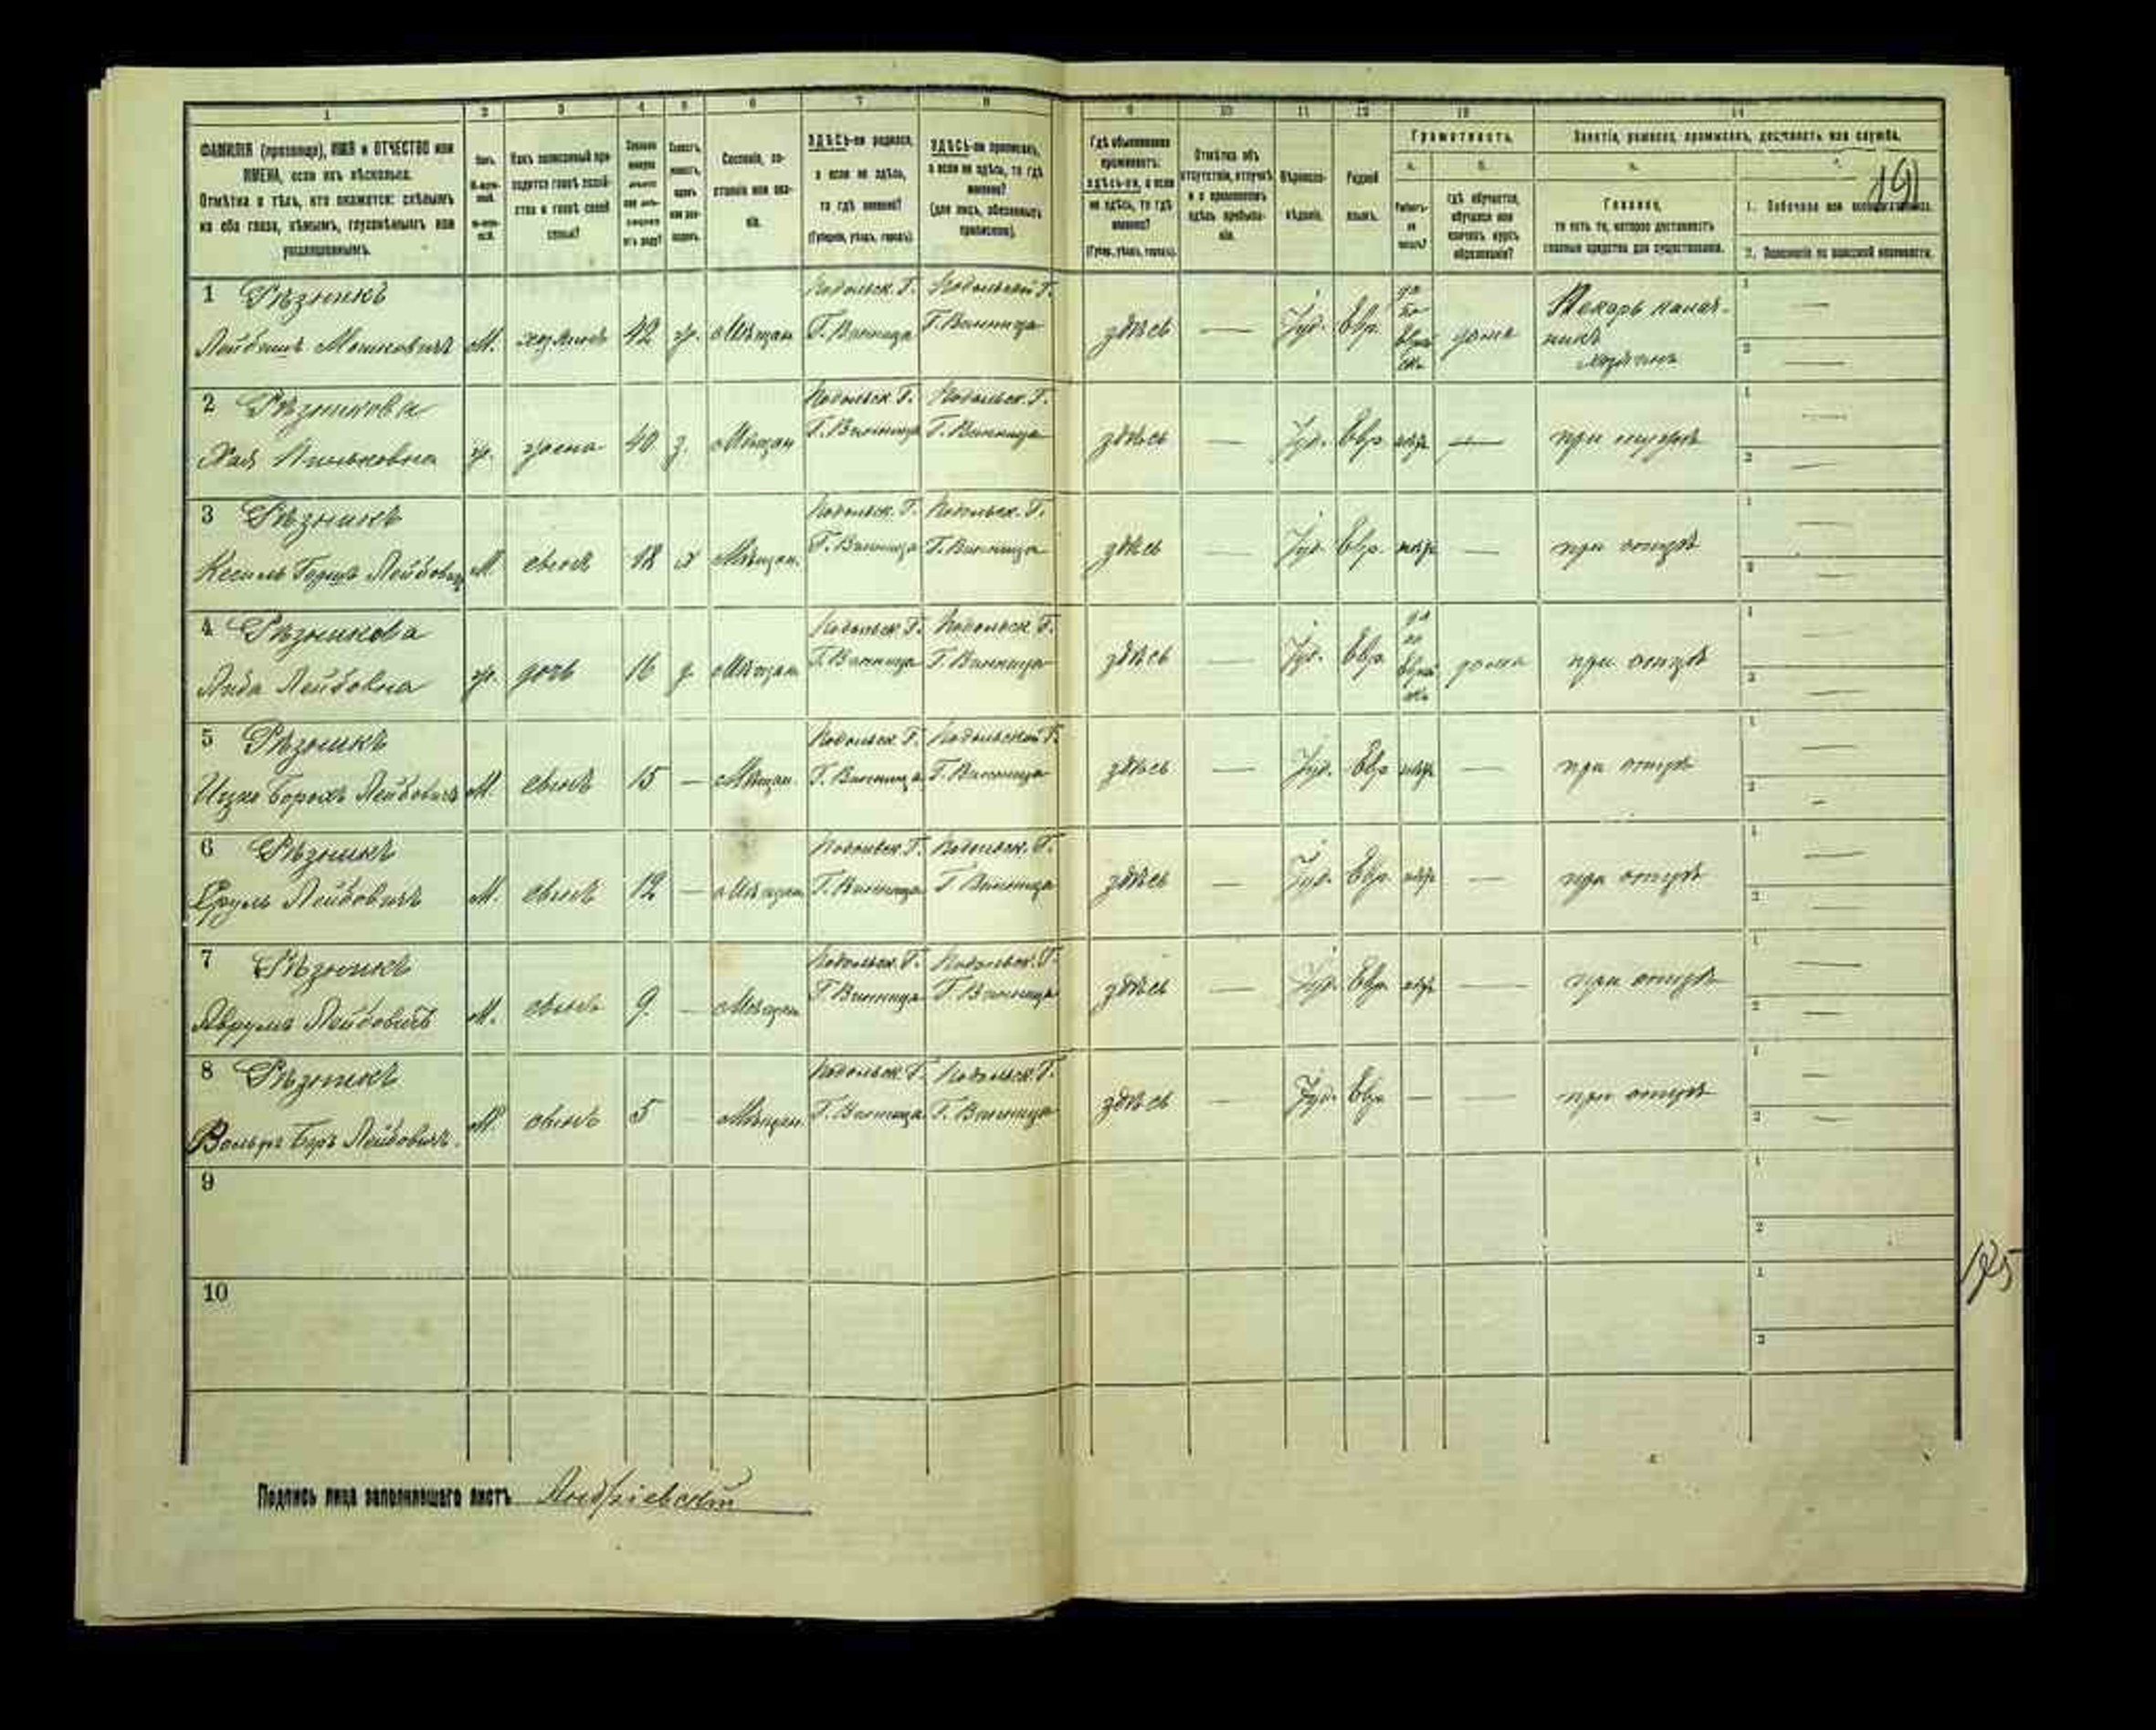 1 2 3 4 5 6 7 8 9 10 11 12 13 14
ФАМИЛІЯ (прозвище), ИМЯ и ОТЧЕСТВО или
ИМЕНА, если ихъ нѣсколько.
Отмѣтка о тѣхъ, кто окажется: слѣпымъ
на оба глаза, нѣмымъ, глухонѣмымъ или
умалишеннымъ.
Какъ записанный при-
ходится главѣ хозяй-
ства и главѣ своей
семьи?
Сословіе, со-
стояніе или зва-
ніе.
ЗДѢСЬ-ли родился,
а если не здѣсь,
то гдѣ именно?
(Губернія, уѣздъ, городъ).
ЗДѢСЬ-ли приписанъ,
а если не здѣсь, то гдѣ
именно?
(для лицъ, обязанныхъ
припискою).
Гдѣ обыкновенно
проживаетъ:
здѣсь-ли, а если
не здѣсь, то гдѣ
именно?
(Губер., уѣздъ, городъ).
Отмѣтка объ
отсутствіи, отлучкѣ
и о временномъ
здѣсь пребыва-
ніи.
Вѣроиспо-
вѣданіе.
Родной
языкъ.
Грамотность.
а. б.
гдѣ обучается,
обучался или
кончилъ курсъ
образованія?
Занятіе, ремесло, промыселъ, должность или служба.
Главное,
то есть то, которое доставляетъ
главныя средства для существованія.
1. Побочное или вспомогательное.
2. Положеніе по воинской повинности.
1 Рѣзникъ
Лейбишъ Мошковичъ М. хозяинъ 42 ж. Мѣщан Подольск. Г. Г. Винница Подольской Г. Г. Винница здѣсь — Іуд. Евр. да дома Пекарь калач-
никъ
хозяинъ
2 Рѣзникова
Хая ж. жена 40 з. Мѣщан Подольск. Г. Г. Винница Подольск. Г. Г. Винница здѣсь — Іуд. Евр нѣтъ — при мужѣ
3 Рѣзникъ
Кесиль Гершъ М. сынъ 18 х Мѣщан. Подольск. Г. Г. Винница Подольск. Г. Г. Винница здѣсь — Іуд. Евр. нѣтъ — при отцѣ
4 Рѣзникова
Лейбовна ж. дочь 16 д. Мѣщан Подольск. Г. Г. Винница Подольск Г. Г. Винница здѣсь — Іуд. Евр да по дома при отцѣ
5 Рѣзникъ
Ицко Борохъ Лейбовичъ М. сынъ 15 — Мѣщан. Подольск. Г. Г. Винница Подольской Г. Г. Винница здѣсь — Іуд. Евр нѣтъ — при отцѣ
6 Рѣзникъ
Сруль Лейбовичъ М. сынъ 12 — Мѣщан Подольск. Г. Г. Винница Подольск. Г. Г Винница здѣсь — Іуд. Евр. нѣтъ — при отцѣ
7 Рѣзникъ
Аврумъ Лейбовичъ М. сынъ 9. — Мѣщан Подольск. Г. Г Винница Подольск. Г. Г. Винница здѣсь — Іуд. Евр. нѣтъ — при отцѣ
8 Рѣзникъ
Вольфъ Беръ Лейбовичъ. М сынъ 5 Мѣщан. Подольск. Г. Г. Винница Подольск. Г. Г. Винница здѣсь — Іуд. Евр. — — при отцѣ
9
10
Подпись лица заполнившаго листъ Андріевскій